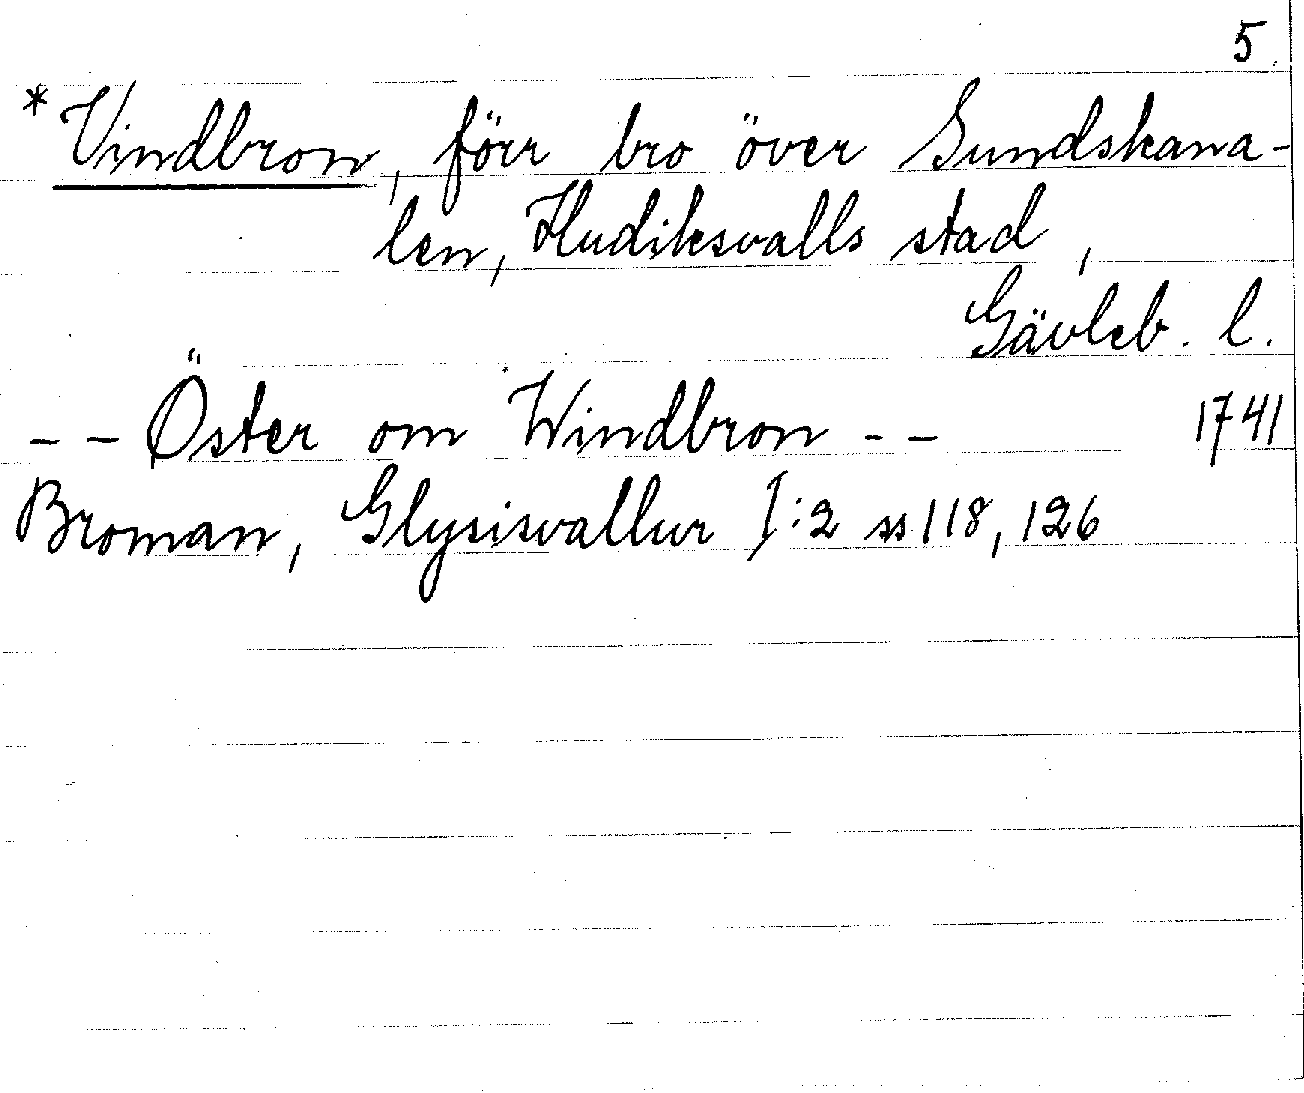 5.
*Vindbron, förr bro över Sundskana-
len, Hudiksvalls stad,
Gävleb. l.
-- Öster om Windbron -- 1741
Broman, Glysisvallur I:2 ss 118, 126